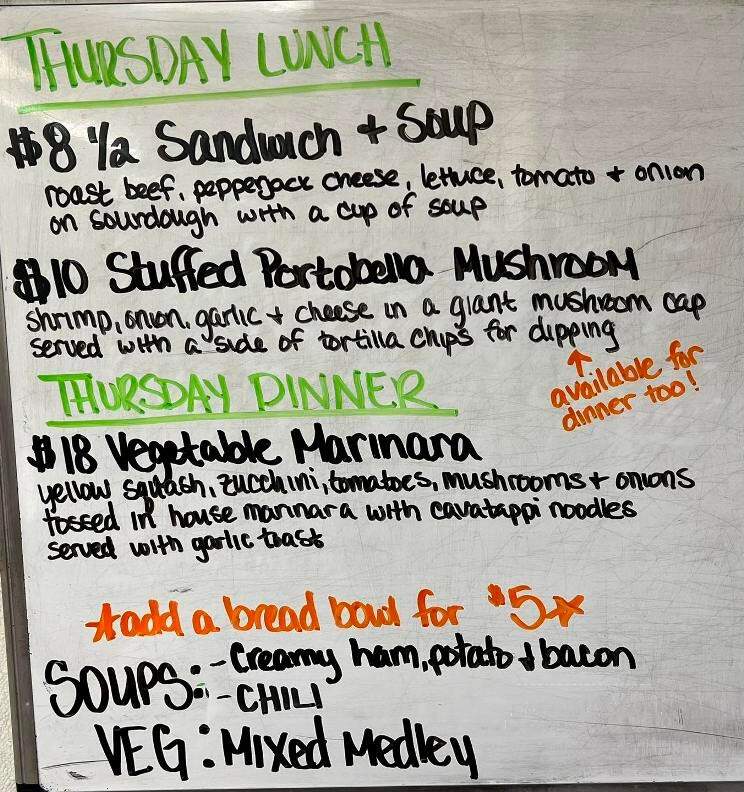 THURSDAY LUNCH
$8 1/2 Sandwich + Soup
roast beef, pepperjack cheese, lettuce, tomato + onion
on sourdough with a cup of soup
$10 Stuffed Portobella Mushroom
shrimp, onion, garlic + cheese in a giant mushroom cap
served with a side of tortilla chips for dipping
↑
available for
dinner too!
THURSDAY DINNER
$18 Vegetable Marinara
yellow squash, zucchini, tomatoes, mushrooms + onions
tossed in house marinara with cavatappi noodles
served with garlic toast
*add a bread bowl for $5*
SOUPS: - Creamy ham, potato + bacon
- CHILI
VEG: Mixed Medley